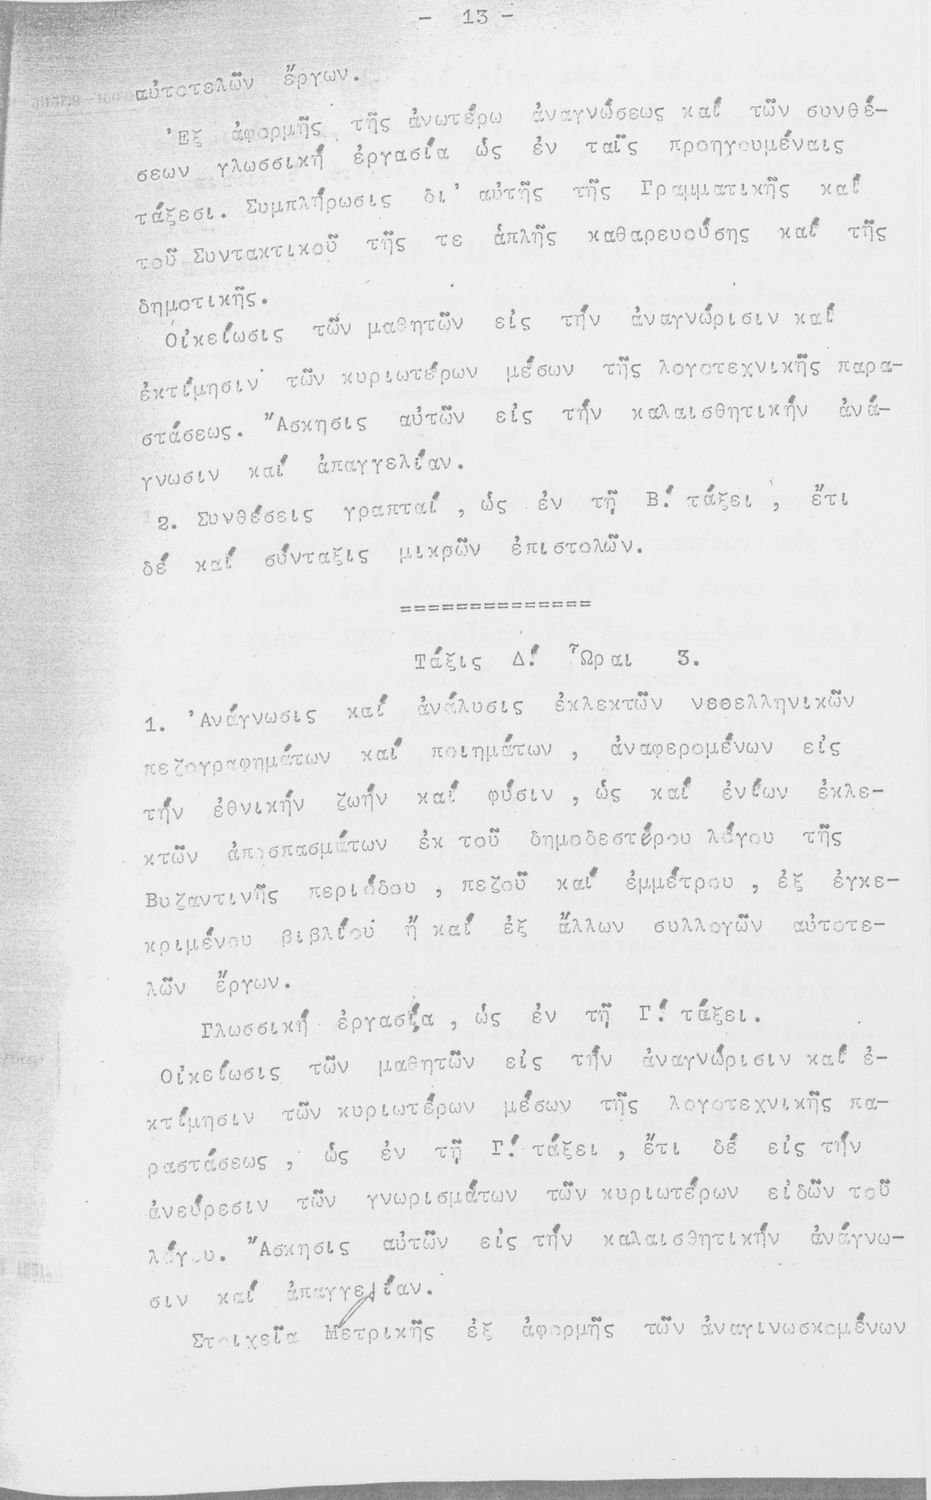 - 13 -
αὐτοτελῶν ἔργων.
Ἐξ ἀφορμῆς τῆς ἀνωτέρω ἀναγνώσεως καί τῶν συνθέ-
σεων γλωσσική ἐργασία ὡς ἐν ταῖς προηγουμέναις
τάξεσι. Συμπλήρωσις δι' αὐτῆς τῆς Γραμματικῆς καί
τοῦ Συντακτικοῦ τῆς τε ἁπλῆς καθαρευούσης καί τῆς
δημοτικῆς.
Οἰκείωσις τῶν μαθητῶν εἰς τήν ἀναγνώρισιν καί
ἐκτίμησιν τῶν κυριωτέρων μέσων τῆς λογοτεχνικῆς παρα-
στάσεως. Ἄσκησις αὐτῶν εἰς τήν καλαισθητικήν ἀνά-
γνωσιν καί ἀπαγγελίαν.
2. Συνθέσεις γραπταί, ὡς ἐν τῇ Β΄. τάξει, ἔτι
δέ καί σύνταξις μικρῶν ἐπιστολῶν.
==============
Τάξις Δ΄. Ὧραι 3.
1. Ἀνάγνωσις καί ἀνάλυσις ἐκλεκτῶν νεοελληνικῶν
πεζογραφημάτων καί ποιημάτων, ἀναφερομένων εἰς
τήν ἐθνικήν ζωήν καί φύσιν, ὡς καί ἐνίων ἐκλε-
κτῶν ἀποσπασμάτων ἐκ τοῦ δημοδεστέρου λόγου τῆς
Βυζαντινῆς περιόδου, πεζοῦ καί ἐμμέτρου, ἐξ ἐγκε-
κριμένου βιβλίου ἤ καί ἐξ ἄλλων συλλογῶν αὐτοτε-
λῶν ἔργων.
Γλωσσική ἐργασία, ὡς ἐν τῇ Γ΄. τάξει.
Οἰκείωσις τῶν μαθητῶν εἰς τήν ἀναγνώρισιν καί ἐ-
κτίμησιν τῶν κυριωτέρων μέσων τῆς λογοτεχνικῆς πα-
ραστάσεως, ὡς ἐν τῇ Γ΄. τάξει, ἔτι δέ εἰς τήν
ἀνεύρεσιν τῶν γνωρισμάτων τῶν κυριωτέρων εἰδῶν τοῦ
λόγου. Ἄσκησις αὐτῶν εἰς τήν καλαισθητικήν ἀνάγνω-
σιν καί ἀπαγγελίαν.
Στοιχεῖα Μετρικῆς ἐξ ἀφορμῆς τῶν ἀναγινωσκομένων